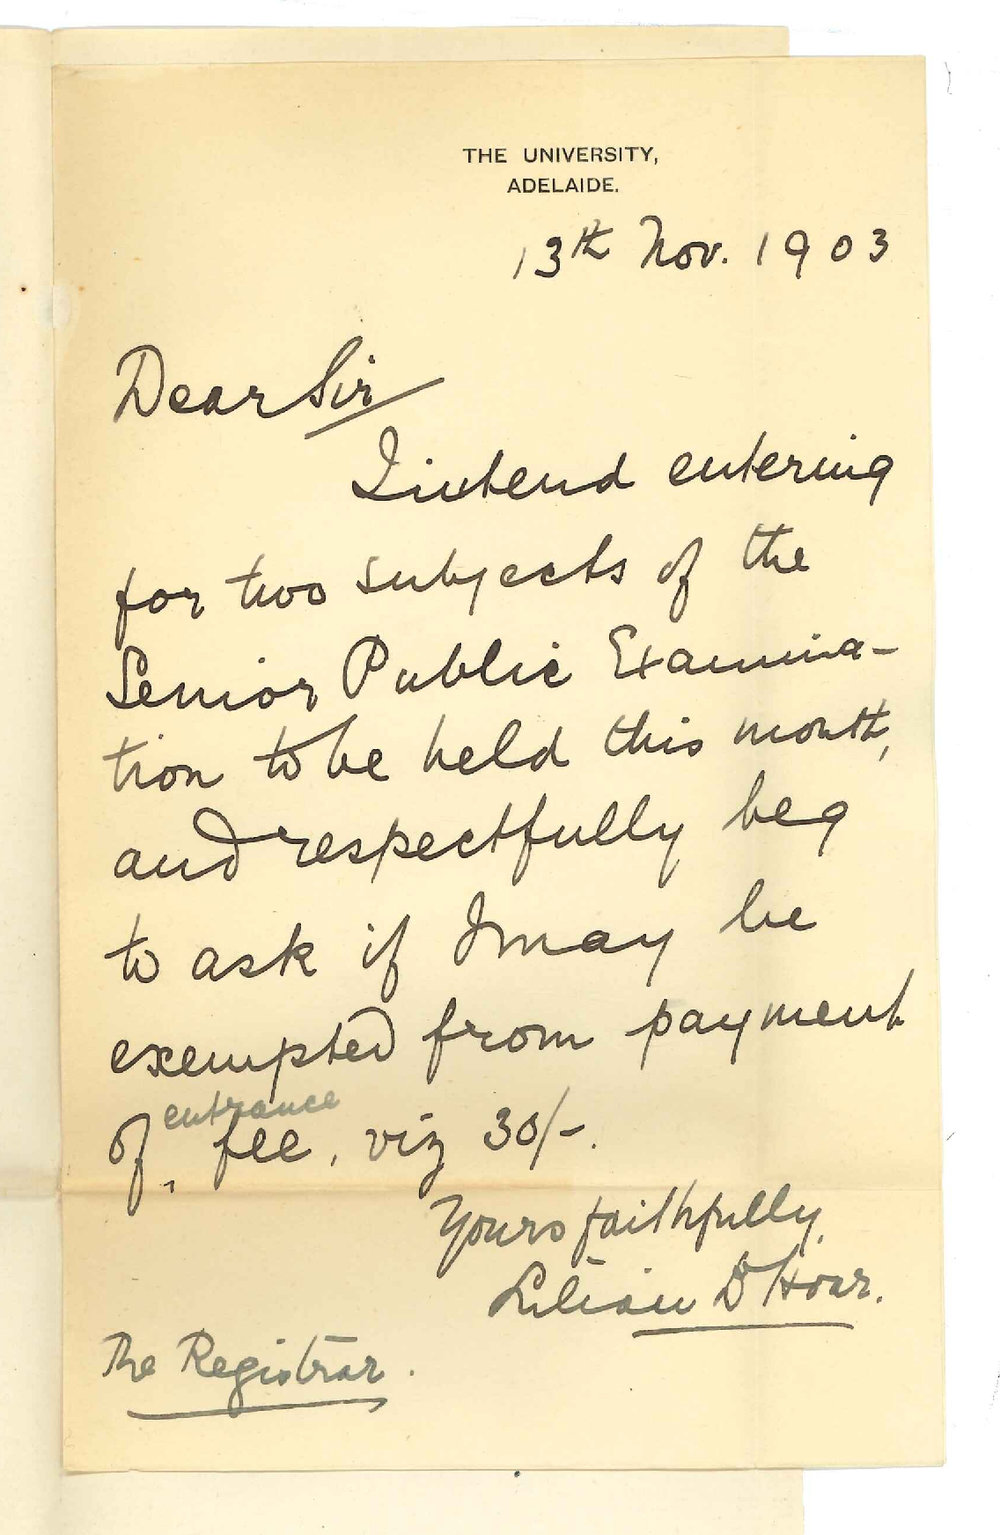 THE UNIVERSITY,
ADELAIDE.
13th Nov. 1903
Dear Sir
I intend entering
for two subjects of the
Senior Public Examina-
tion to be held this month,
and respectfully beg
to ask if I may be
exempted from payment
of entrance fee, viz 30/-.
Yours faithfully,
Lilian D Hoar.
The Registrar.